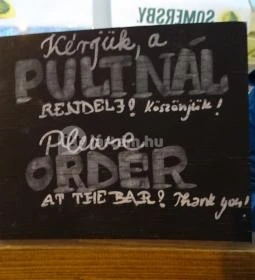 SOMERSBY.
Kérjük, a
PULTNÁL
RENDELJ! Köszönjük!
Please
ORDER
AT THE BAR! Thank you!